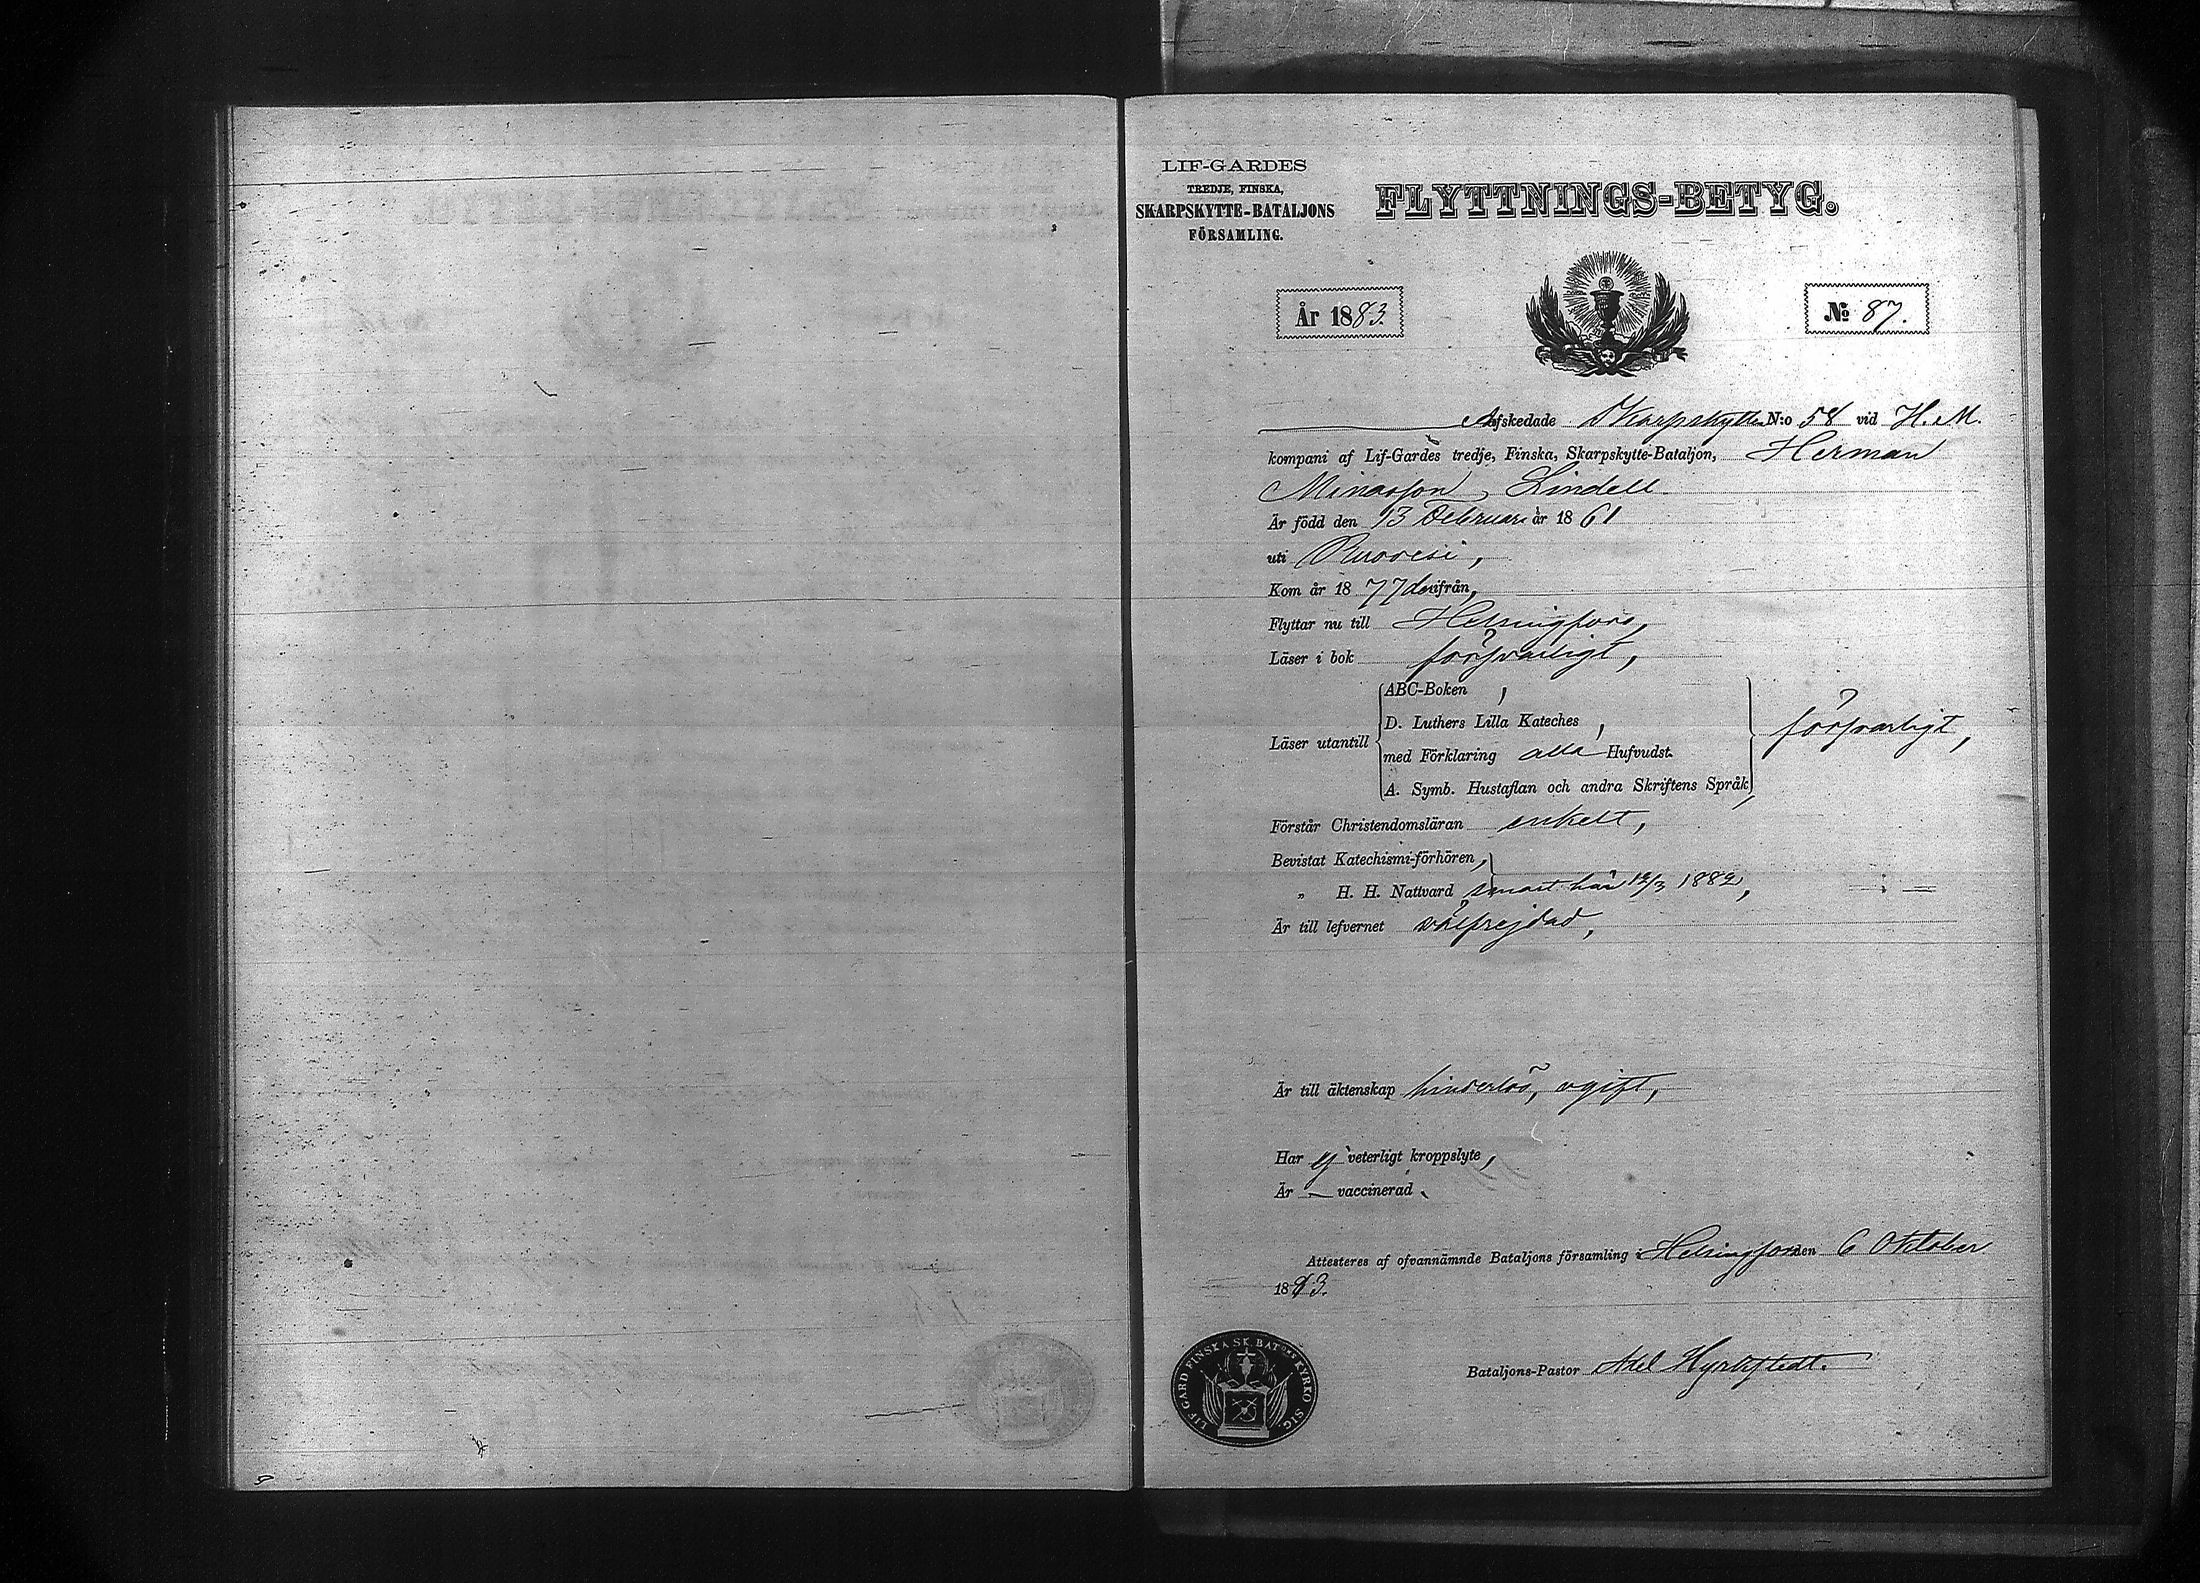 LIF-GARDES
TREDJE, FINSKA,
SKARPSKYTTE-BATALJONS
FÖRSAMLING.
FLYTTNINGS-BETYG.
År 1883.
№ 87.
Afskedade Skarpskytten N:o 58 vid H. M.
kompani af Lif-Gardes tredje, Finska, Skarpskytte-Bataljon, Herman
Lindell.
Är född den 13 Februari år 1861
uti Ruovesi,
Kom år 1877 derifrån,
Flyttar nu till Helsingfors,
Läser i bok försvarligt,
ABC-Boken,
D. Luthers Lilla Kateches,
Läser utantill
med Förklaring alla Hufvudst.
försvarligt,
A. Symb. Hustaflan och andra Skriftens Språk,
Förstår Christendomsläran enkelt,
Bevistat Katechismi-förhören,
„ H. H. Nattvard senast här 12/3 1882,
Är till lefvernet välfrejdad,
Är till äktenskap hinderlös, ogift,
Har ej veterligt kroppslyte,
Är — vaccinerad.
Attesteres af ofvannämnde Bataljons församling i Helsingfors den 6 Oktober
1883.
LIF-GARD FINSKA SK BAT:ONS KYRKO SIG.
Bataljons-Pastor Axel